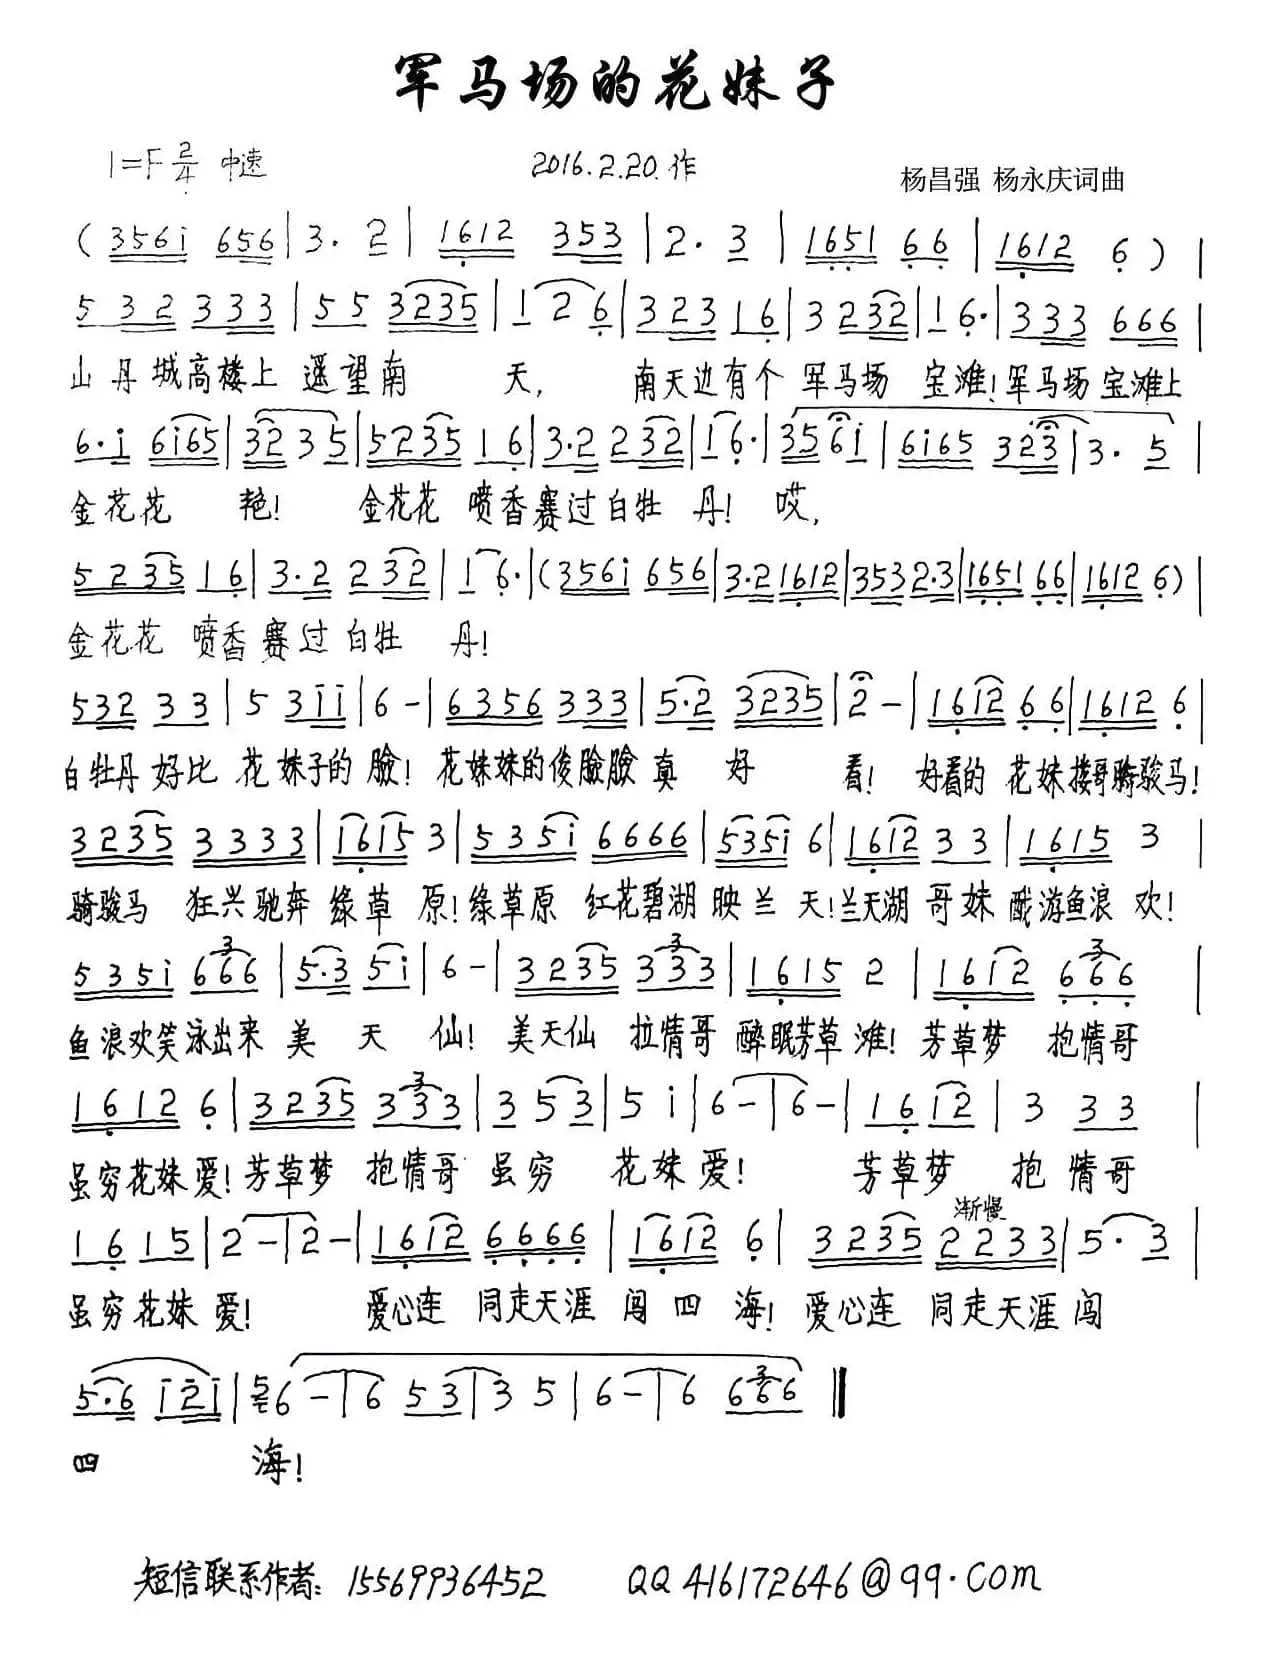 军马场的花妹子
1=F 2/4 中速 2016.2.20.作 杨昌强 杨永庆词曲
(3561 656|3. 2|1612 353|2. 3|1651 66|1612 6)|
5 32 333|55 3235|1 2 6|323 16|3 232|1 6.|333 666|
山丹城高楼上遥望南 天, 南天边有个军马场 宝滩!军马场宝滩上
6.i 6i65|32 35|5235 16|3.2 232|1 6.|35 6i|6i65 323|3. 5|
金花花 艳! 金花花 喷香赛过白牡 丹! 哎,
5235 16|3.2 232|1 6.|(356i 656|3.2 1612|353 2.3|1651 66|1612 6)|
金花花 喷香赛过白牡 丹!
532 33|5 3ii|6 -|6356 333|5.2 3235|2 -|1612 66|1612 6|
白牡丹好比 花妹子的 臉! 花妹妹的俊臉臉真 好 看! 好看的 花妹搂哥骑骏马!
3235 3333|1615 3|535i 6666|535i 6|1612 33|1615 3|
骑骏马 狂兴驰奔 绿草 原!绿草原 红花碧湖映兰天!兰天湖 哥妹 戲游鱼浪 欢!
535i 666|5.3 5i|6 -|3235 333|1615 2|1612 666
鱼浪欢笑泳出来 美 天 仙! 美天仙 拉情哥 醉眠芳草滩! 芳草梦 抱情哥
1612 6|3235 333|3 53|5 i|6 -|6 -|1612|3 33|
虽穷花妹爱!芳草梦 抱情哥 虽穷 花妹爱! 芳草梦 抱 情哥
渐慢
1615|2 -|2 -|1612 6666|1612 6|3235 2233|5. 3|
虽穷花妹爱! 爱心连 同走天涯 闯 四 海! 爱心连 同走天涯闯
5.6 i2i|6 -|6 53|3 5|6 -|6 666‖
四 海!
短信联系作者: 15569936452 QQ416172646@qq.com